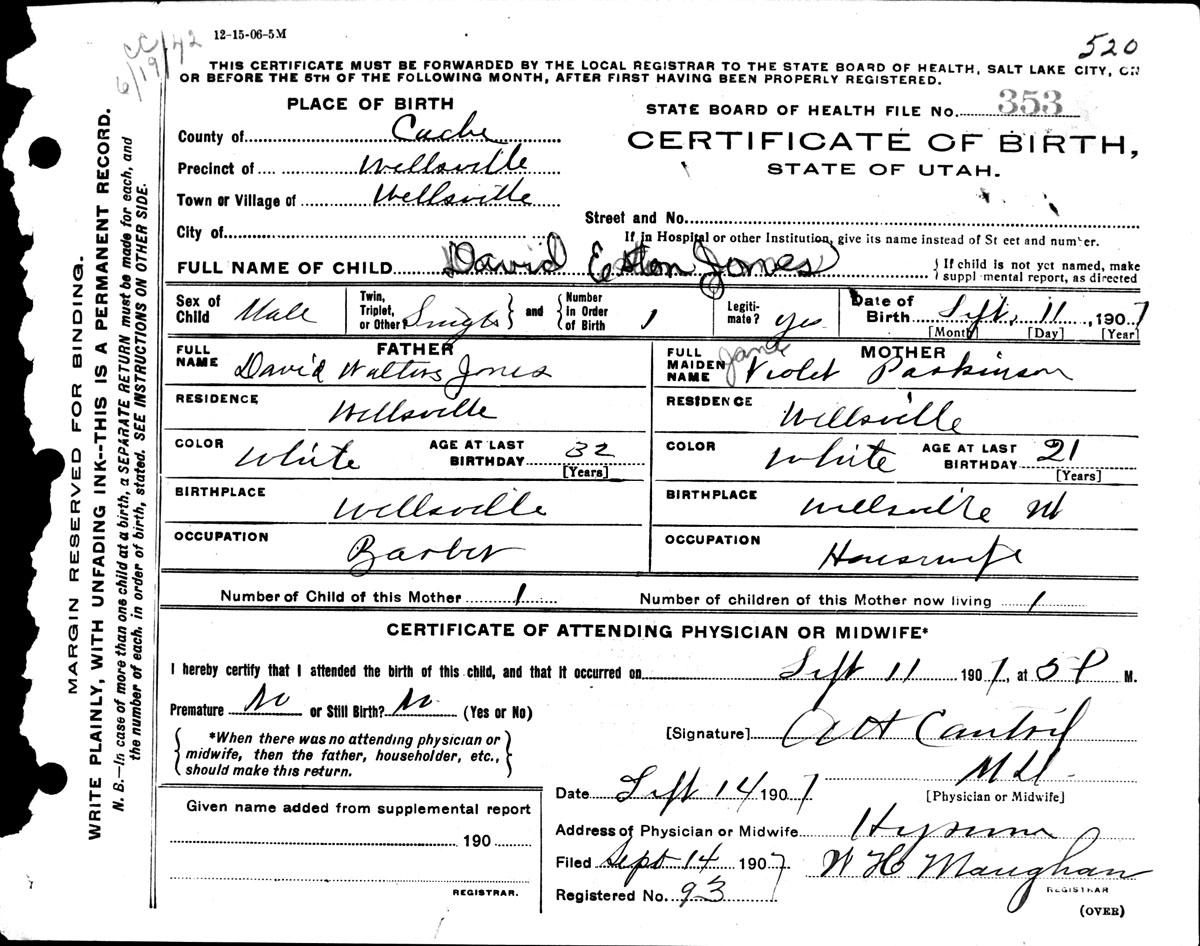 12-15-06-5M
520
CC 6/19/42
THIS CERTIFICATE MUST BE FORWARDED BY THE LOCAL REGISTRAR TO THE STATE BOARD OF HEALTH, SALT LAKE CITY, ON
OR BEFORE THE 5TH OF THE FOLLOWING MONTH, AFTER FIRST HAVING BEEN PROPERLY REGISTERED.
MARGIN RESERVED FOR BINDING.
WRITE PLAINLY, WITH UNFADING INK--THIS IS A PERMANENT RECORD.
N. B.—In case of more than one child at a birth, a SEPARATE RETURN must be made for each, and
the number of each, in order of birth, stated. SEE INSTRUCTIONS ON OTHER SIDE.
PLACE OF BIRTH
County of Cache
Precinct of Wellsville
Town or Village of Wellsville
City of
STATE BOARD OF HEALTH FILE No. 353
CERTIFICATE OF BIRTH,
STATE OF UTAH.
Street and No.
If in Hospital or other Institution, give its name instead of St eet and number.
FULL NAME OF CHILD David Eston Jones
If child is not yet named, make
suppl mental report, as directed
Sex of Child Male
Twin, Triplet, or Other? Single
and Number in Order of Birth 1
Legiti- mate? yes
Date of Birth Sept. 11, 1907
[Month] [Day] [Year]
FATHER
FULL NAME David Walters Jones
RESIDENCE Wellsville
COLOR White AGE AT LAST BIRTHDAY 32
[Years]
BIRTHPLACE Wellsville
OCCUPATION Barber
MOTHER
FULL MAIDEN NAME Jane Violet Parkinson
RESIDENCE Wellsville
COLOR White AGE AT LAST BIRTHDAY 21
[Years]
BIRTHPLACE Wellsville
OCCUPATION Housewife
Number of Child of this Mother 1 Number of children of this Mother now living 1
CERTIFICATE OF ATTENDING PHYSICIAN OR MIDWIFE*
I hereby certify that I attended the birth of this child, and that it occurred on Sept 11 1907, at 5 P M.
Premature No or Still Birth? No (Yes or No)
*When there was no attending physician or
midwife, then the father, householder, etc.,
should make this return.
[Signature] A H Cantril
M D.
[Physician or Midwife]
Date Sept 14 1907
Address of Physician or Midwife Hyrum
Filed Sept 14 1907 W H Maughan
REGISTRAR
Registered No. 93
(OVER)
Given name added from supplemental report
190
REGISTRAR.